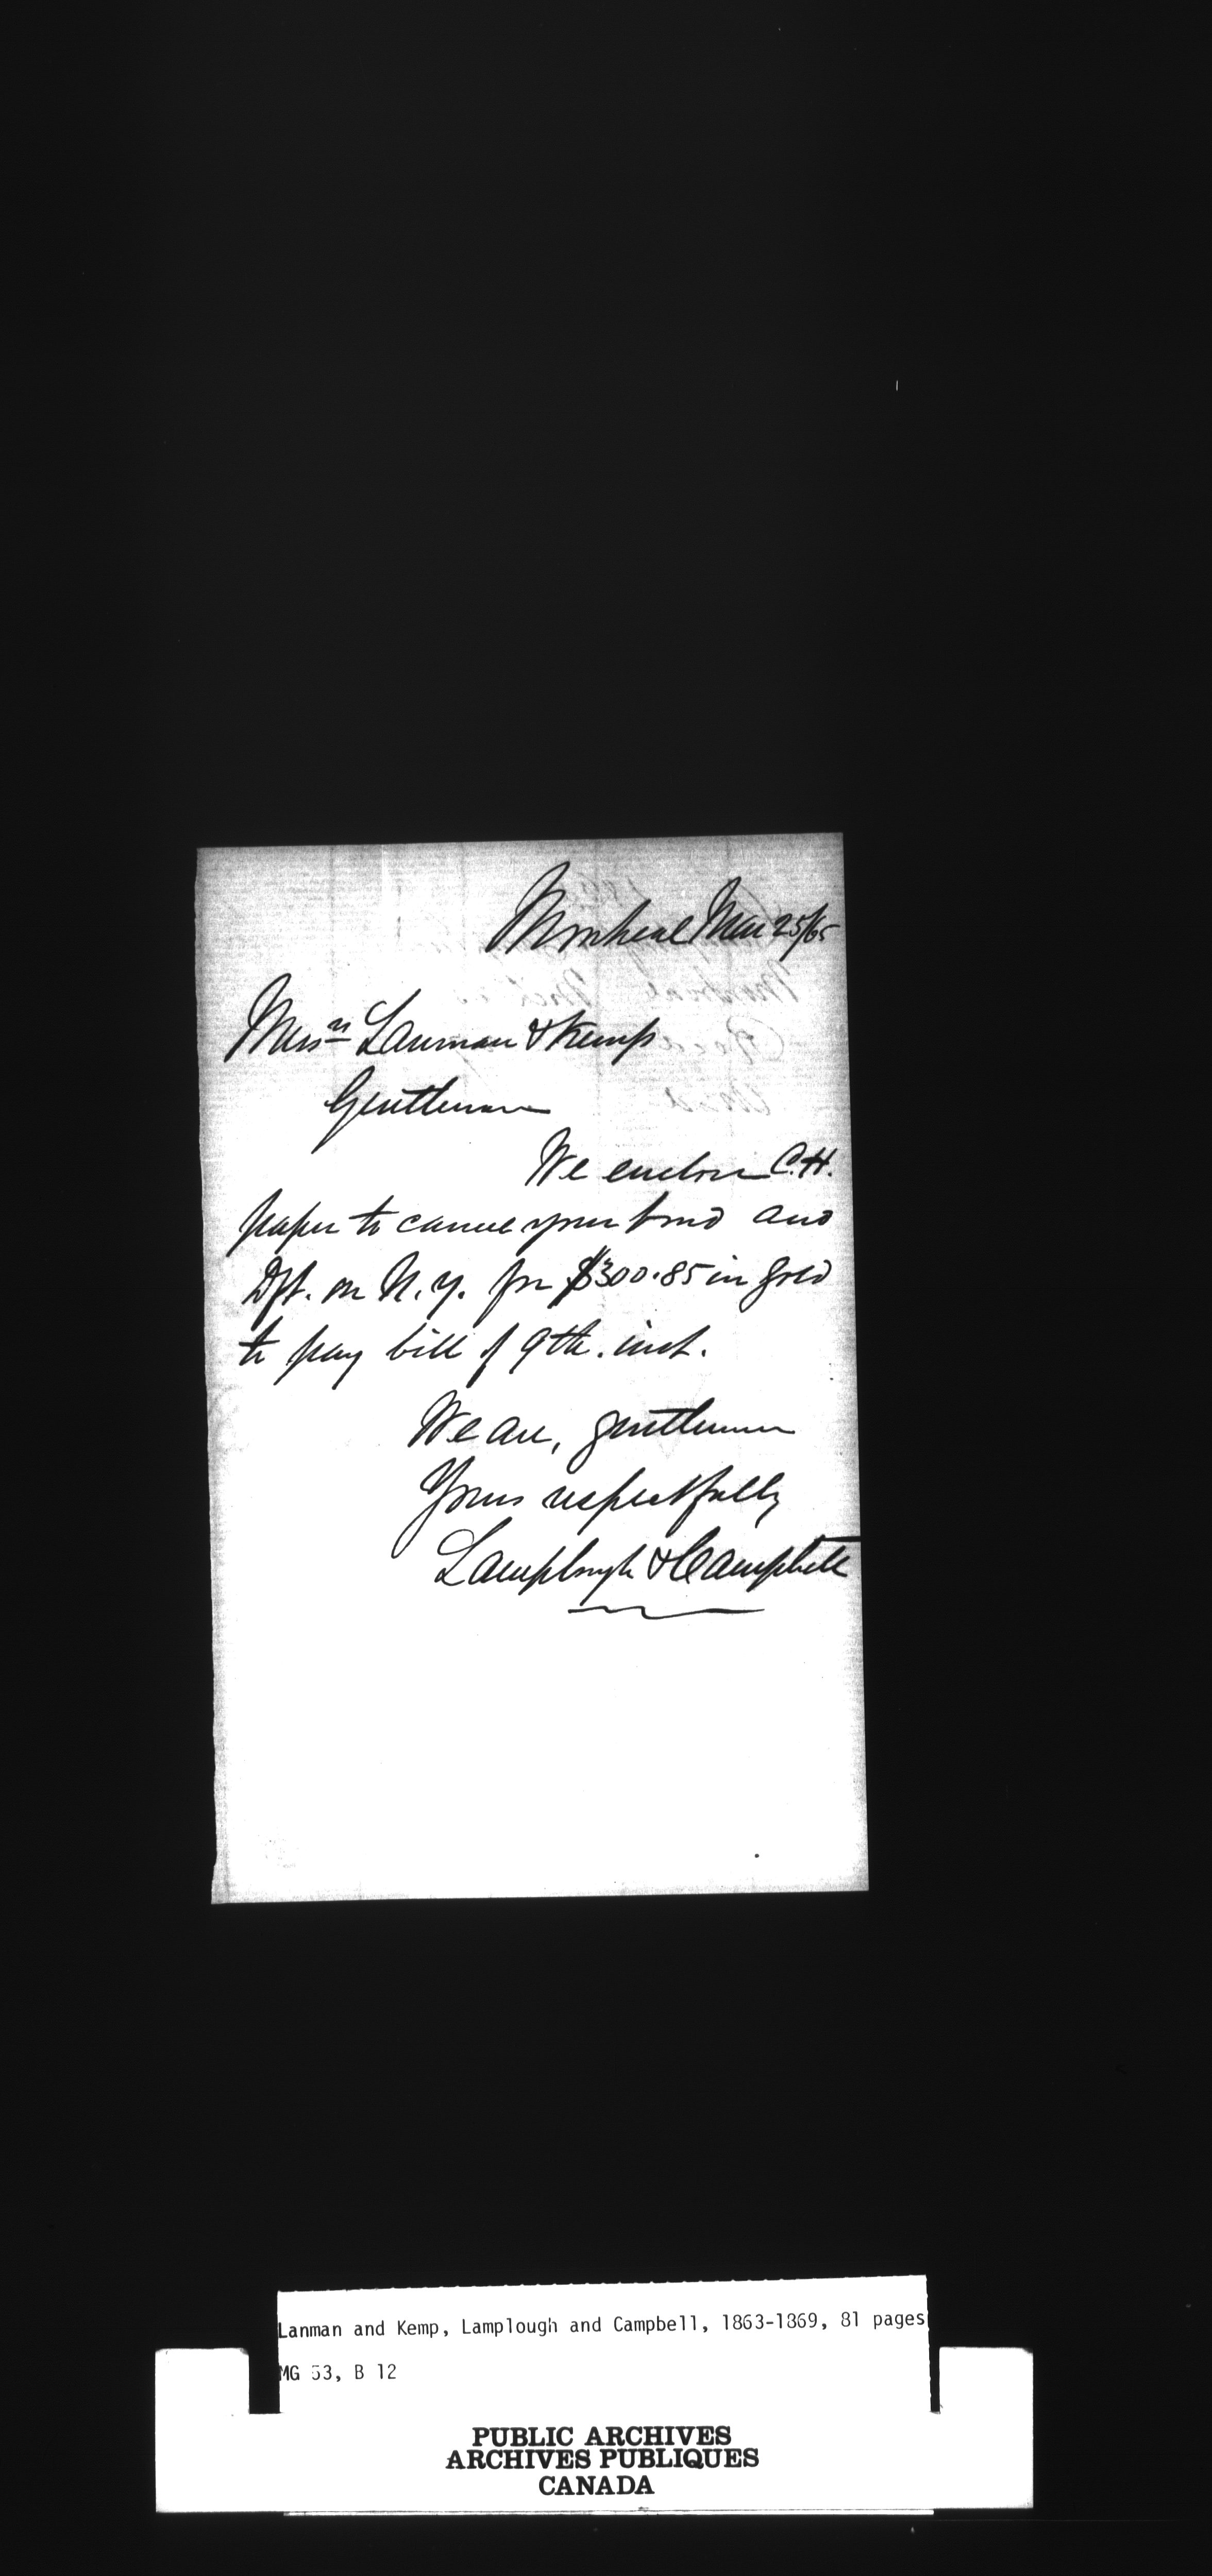 Montreal Mar 25/65
Messrs Lanman & Kemp
Gentlemen
We enclose C.H.
paper to cancel your bond and
Dft. on N.Y. for $300.85 in gold
to pay bill of 9th. inst.
We are, gentlemen
Yours respectfully
Lamplough & Campbell
Lanman and Kemp, Lamplough and Campbell, 1863-1869, 81 pages
MG 53, B 12
PUBLIC ARCHIVES
ARCHIVES PUBLIQUES
CANADA